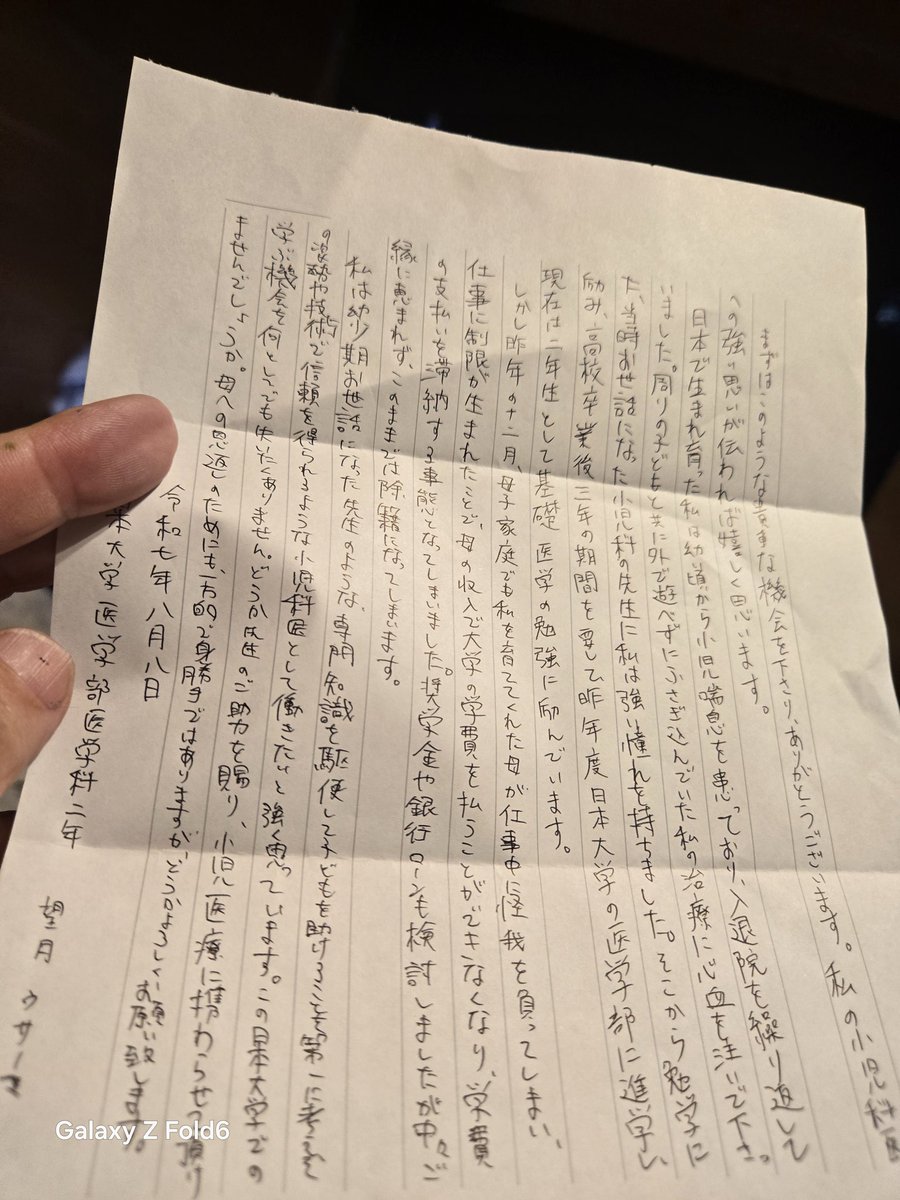 まずはこのような貴重な機会を下さり、ありがとうございます。私の小児科医
への強い思いが伝われば嬉しく思います。
日本で生まれ育った私は幼い頃から小児喘息を患っており、入退院を繰り返して
いました。周りの子どもと共に外で遊べずにふさぎ込んでいた私の治療に心血を注いで下さっ
た、当時お世話になった小児科の先生に私は強い憧れを持ちました。そこから勉学に
励み、高校卒業後三年の期間を要して昨年度日本大学の医学部に進学し、
現在は二年生として基礎医学の勉強に励んでいます。
しかし昨年の十二月、母子家庭でも私を育ててくれた母が仕事中に怪我を負ってしまい、
仕事に制限が生まれたことで、母の収入で大学の学費を払うことができなくなり、学費
の支払いを滞納する事態となってしまいました。奨学金や銀行ローンも検討しましたが中々ご
縁に恵まれず、このままでは除籍になってしまいます。
私は幼少期お世話になった先生のような、専門知識を駆使して子どもを助けることを第一に考え、
の姿勢や技術で信頼を得られるような小児科医として働きたいと強く思っています。この日本大学での
学ぶ機会を何としてでも失いたくありません。どうか先生のご助力を賜り、小児医療に携わらせて頂け
ませんでしょうか。母への恩返しのためにも、一方的で身勝手ではありますが、どうかよろしくお願い致します。
令和七年八月八日
本大学医学部医学科二年
望月 ウサーマ
Galaxy Z Fold6